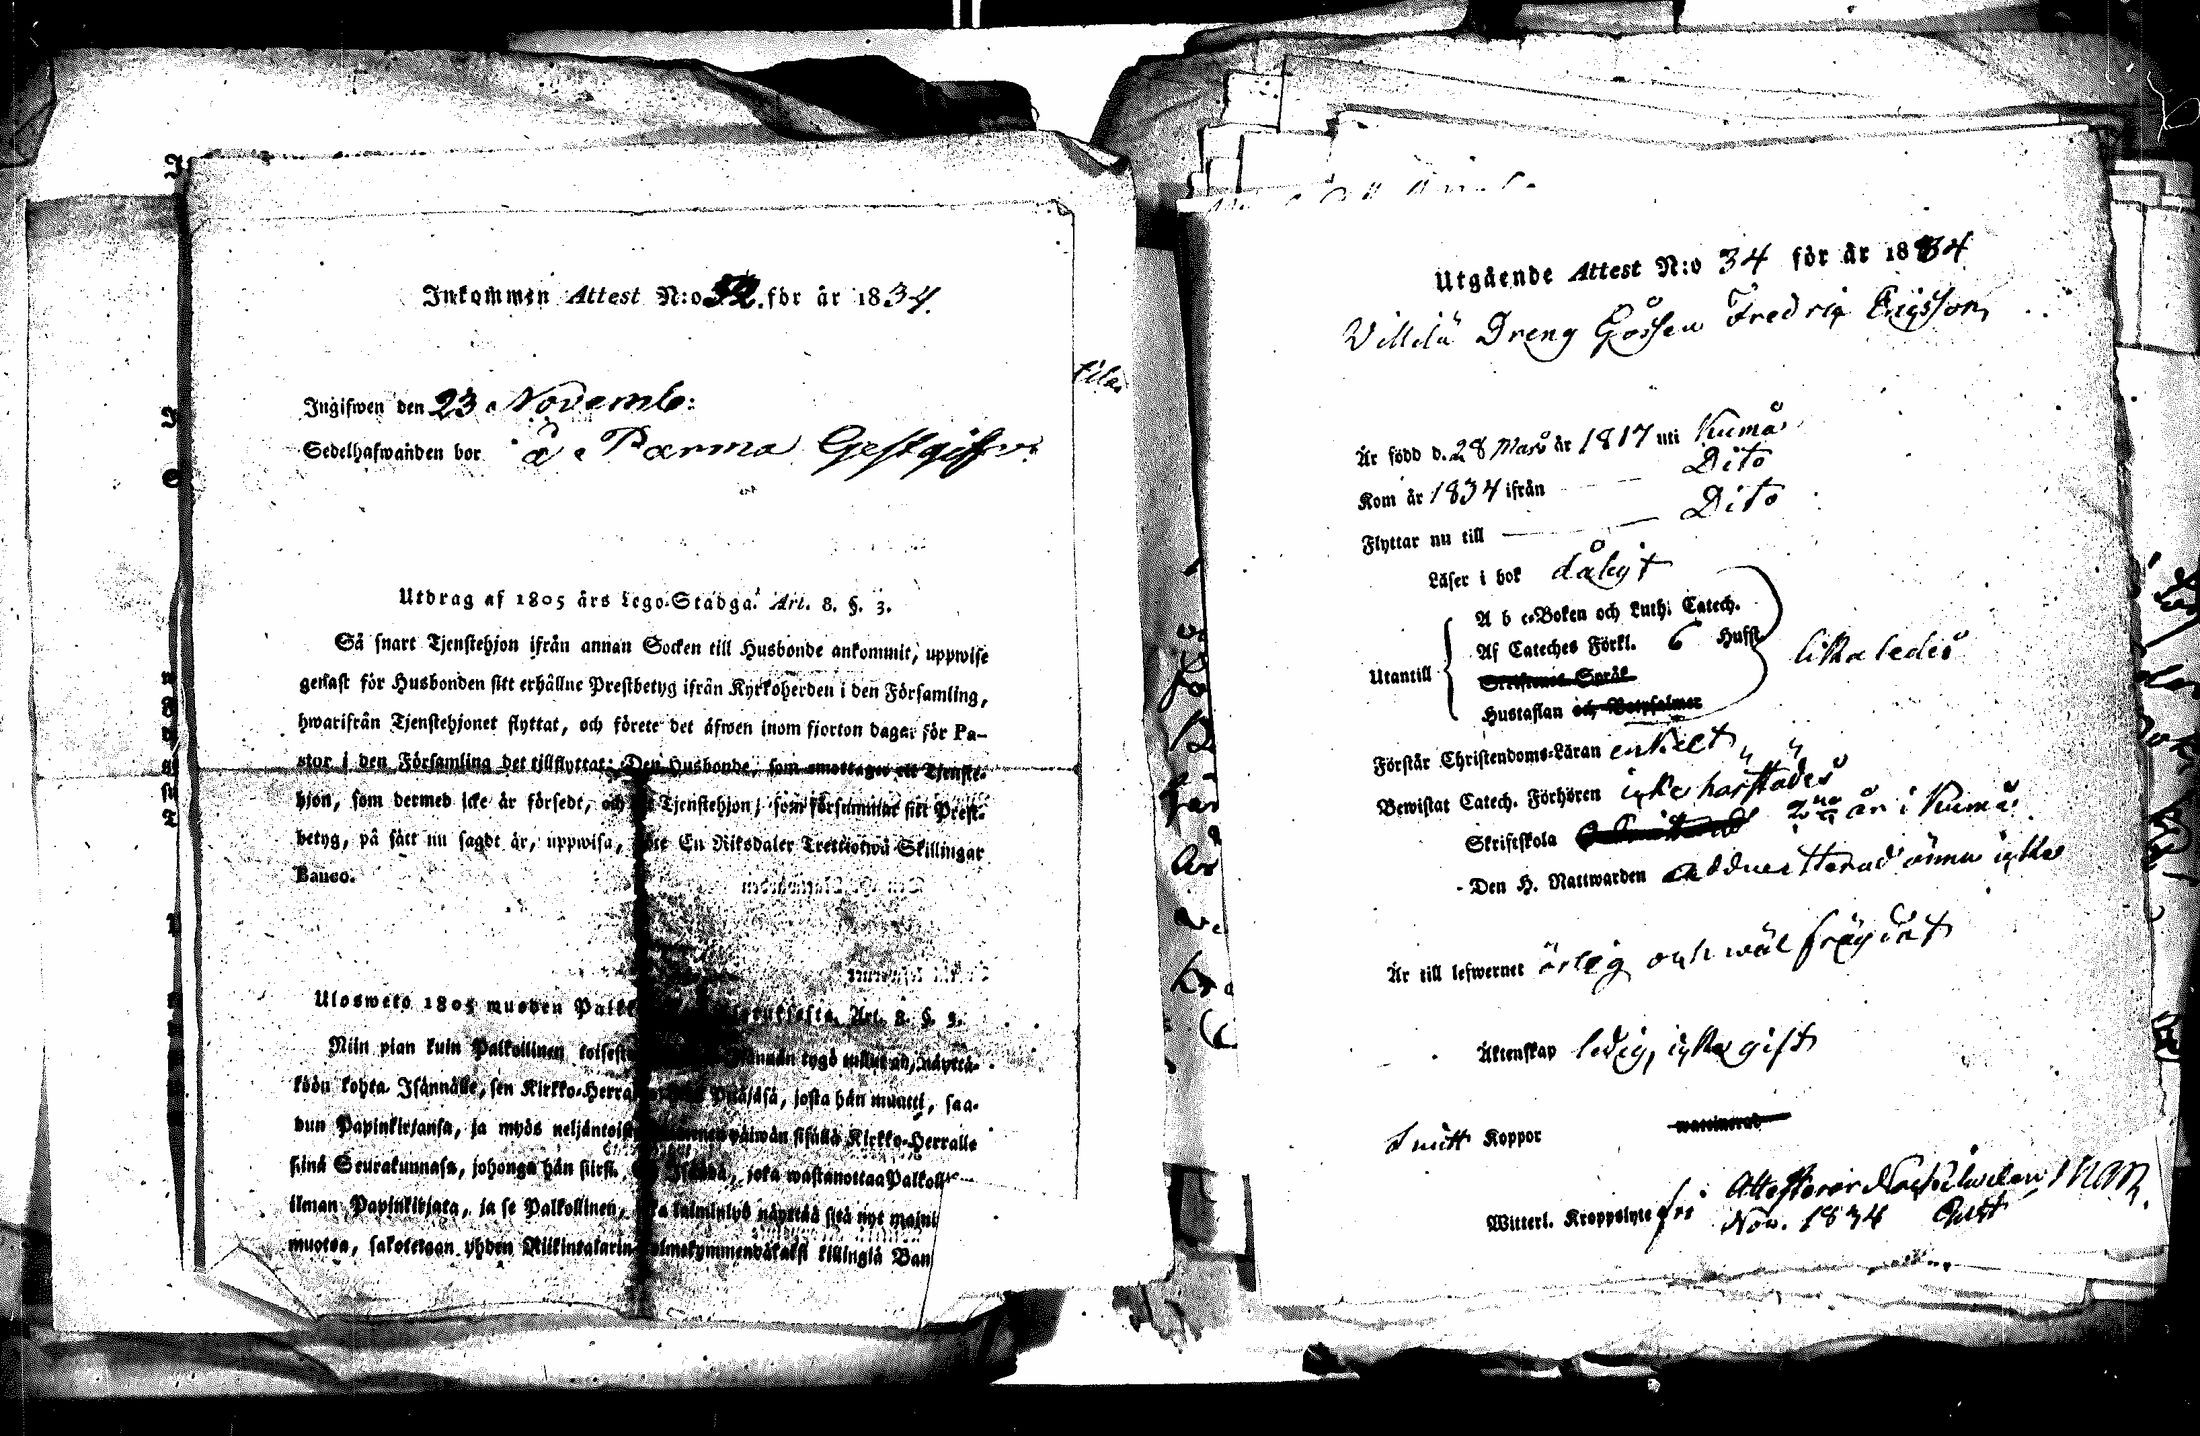 Inkommen Attest N:o 52. för år 1834.
Ingifwen den 23 Novemb:
Sedelhafwanden bor å Parma Gestgifveri
Utdrag af 1805 års Lego-Stadga. Art. 8. §. 3.
Så snart Tjenstehjon ifrån annan Socken till Husbonde ankommit, uppwise
genast för Husbonden sitt erhållne Prestbetyg ifrån Kyrkoherden i den Församling,
hwarifrån Tjenstehjonet flyttat, och förete det äfwen inom fjorton dagar för Pa-
stor i den Församling det tillflyttat: Den Husbonde, som emottager ett Tjenste-
hjon, som dermed icke är försedt, och Tjenstehjon, som försummat sitt Prest-
betyg, på sätt nu sagdt är, uppwisa, böte En Riksdaler Trettiotwå Skillingar
Banco.
Ulosweto 1805 muoden Art. 8. §. 3.
Niin pian kuin Palkollinen tygö tullut on, näyttä-
köön kohta Isännälle, sen Kirkko-Herralda Pitäjäsä, josta hän muutti, saa-
dun Papinkirjansa, ja myös päiwän sisällä Kirkko-Herralle
siinä Seurakunnasa, johonga hän siirsi. Isändä, joka wastanottaa
ilman Papinkirjata, ja se Palkollinen, näyttää sitä nyt
muotoa, sakotetaan yhden killingiä Ban
Utgående Attest N:o 34 för år 1834
Villilä Dreng Gossen Fredric Ericsson
Är född d. 28 Mars år 1817 uti Kumå
Kom år 1834 ifrån Dito
Flyttar nu till Dito
Läser i bok dåligt
A b c-Boken och Luth: Catech.
Utantill Af Cateches Förkl. 6 Hufst likaledes
Skriftenes Språk
Hustaflan och Botpsalmer
Förstår Christendoms-Läran enkelt
Bewistat Catech. Förhören icke harstädes
Skriftskola 2ne år i Kumå
Den H. Nattwarden admitterad ännu icke
Är till lefwernet ärlig och wäl frägdat
Äktenskap ledig, icke gift
Smitt Koppor waccinerad
Witterl. Kroppslyte fri Attesterar
Nov. 1834